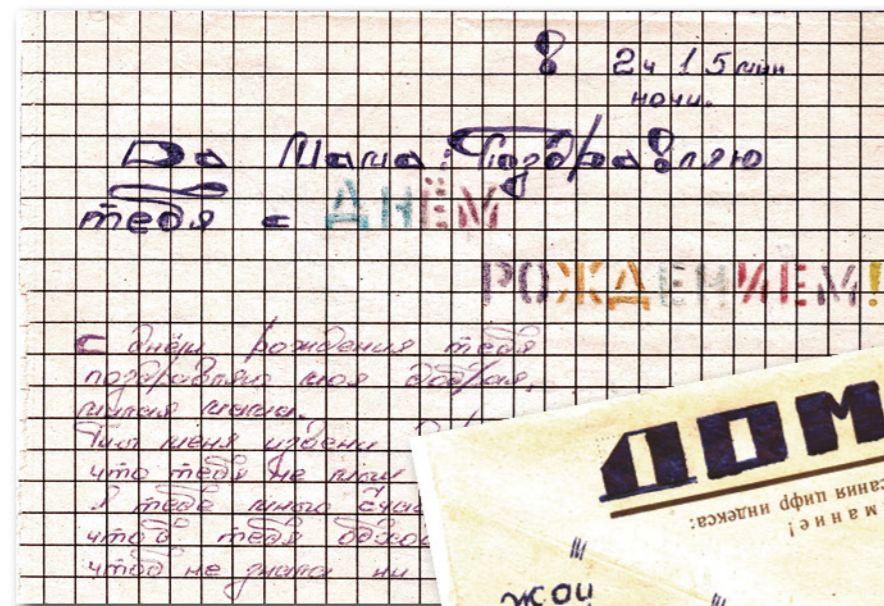 в 2ч 15 мин
ночи.
Да Мама! Поздравляю
тебя с ДНЁМ
РОЖДЕНИЕМ!
С днём рождения тебя
поздравляю моя добрая,
милая мама.
Ты меня извени
что тебя не
Я тебе много счас
чтоб тебя обхо
чтоб не знала ни
ДОМ
сания цифр индекса:
мание!